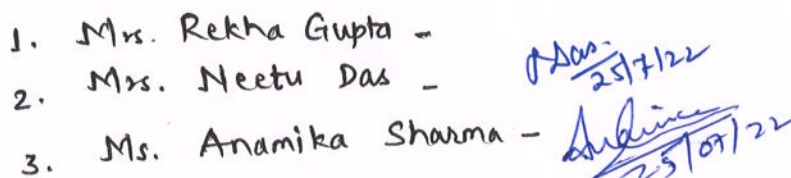 1. Mrs. Rekha Gupta -
2. Mrs. Neetu Das - Das. 25/7/22
3. Ms. Anamika Sharma - 25/07/22